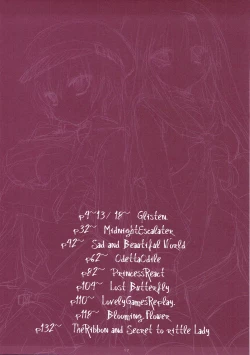 p4~13/ 18~ Glisten.
p32~ MidnightEscalater
p42~ Sad and Beautiful World
p62~ OdettaOdile
p82~ PrincessReact
p104~ Lost Butterfly
p110~ LovelyGamesReplay.
p118~ Blooming, Flower
p132~ TheRibbon and Secret to rittle Lady